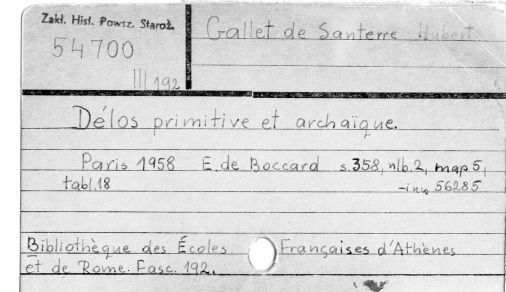 Zakł. Hist. Powsz. Staroż.
54700
III 192
Gallet de Santerre Hubert
Délos primitive et archaïque.
Paris 1958 E. de Boccard s.358, nlb.2, map 5,
tabl.18 -inw 56285
Bibliothèque des Écoles Françaises d'Athènes
et de Rome. Fasc. 192.